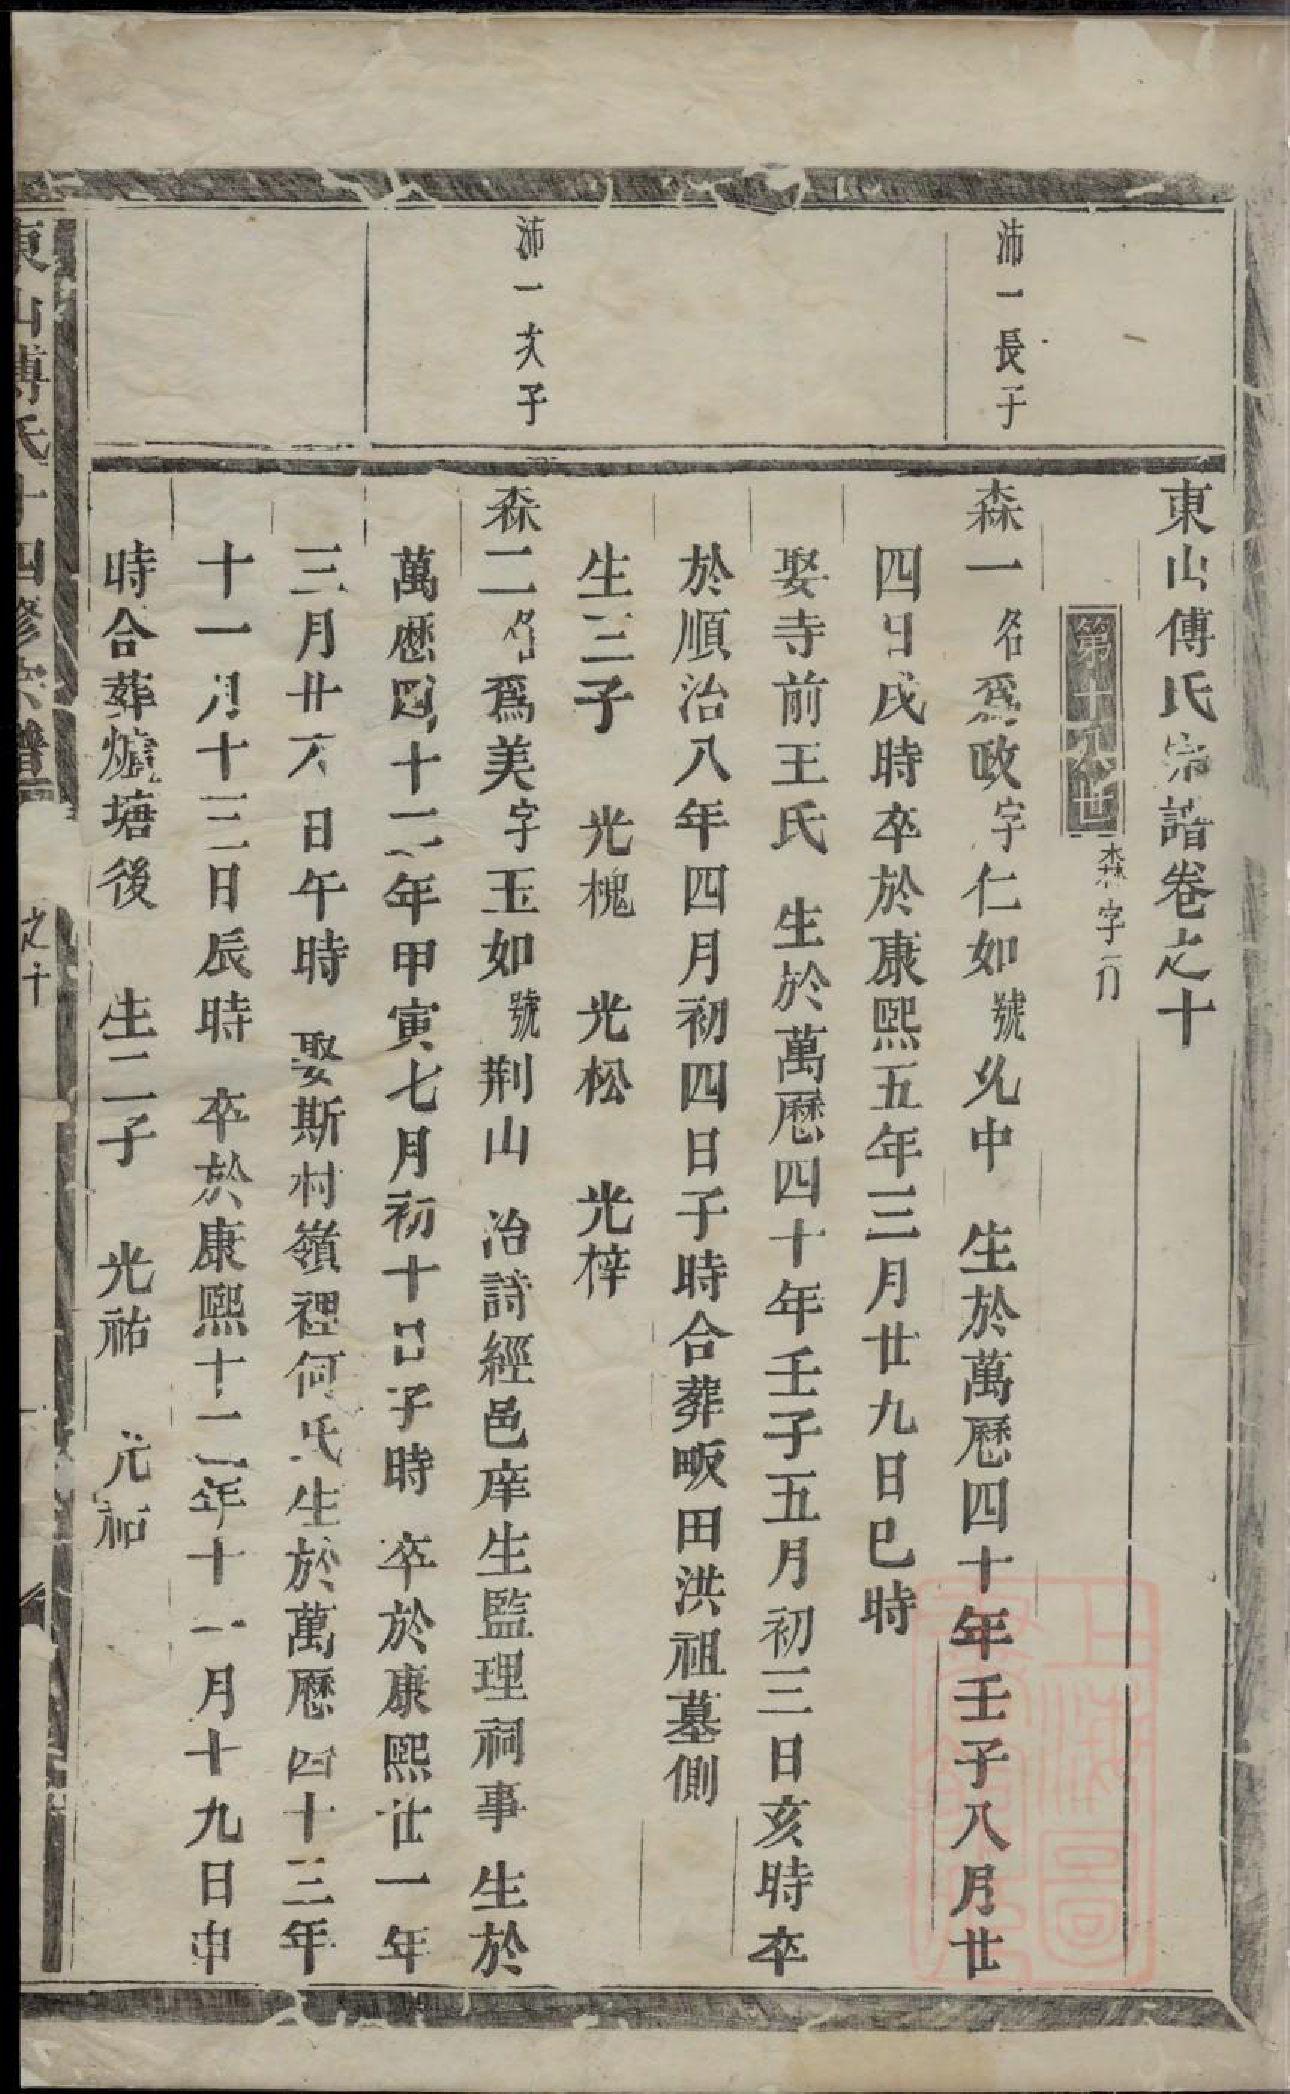 東山傅氏宗譜卷之十
第十八世 森字行
沛一長子
森一 名爲政字仁如號允中 生於萬曆四十年壬子八月廿
四日戌時卒於康熙五年三月廿九日巳時
娶寺前王氏 生於萬曆四十年壬子五月初三日亥時卒
於順治八年四月初四日子時合葬畈田洪祖墓側
生三子 光槐 光松 光梓
沛一次子
森二 名爲美字玉如號荆山 治詩經邑庠生監理祠事 生於
萬曆四十二年甲寅七月初十日子時 卒於康熙廿一年
三月廿六日午時 娶斯村嶺裡何氏生於萬曆四十三年
十一月十三日辰時 卒於康熙十二年十一月十九日申
時合葬爐塘後 生二子 光祐 光祐
東山傅氏十四修宗譜 卷之十
上海圖書館藏